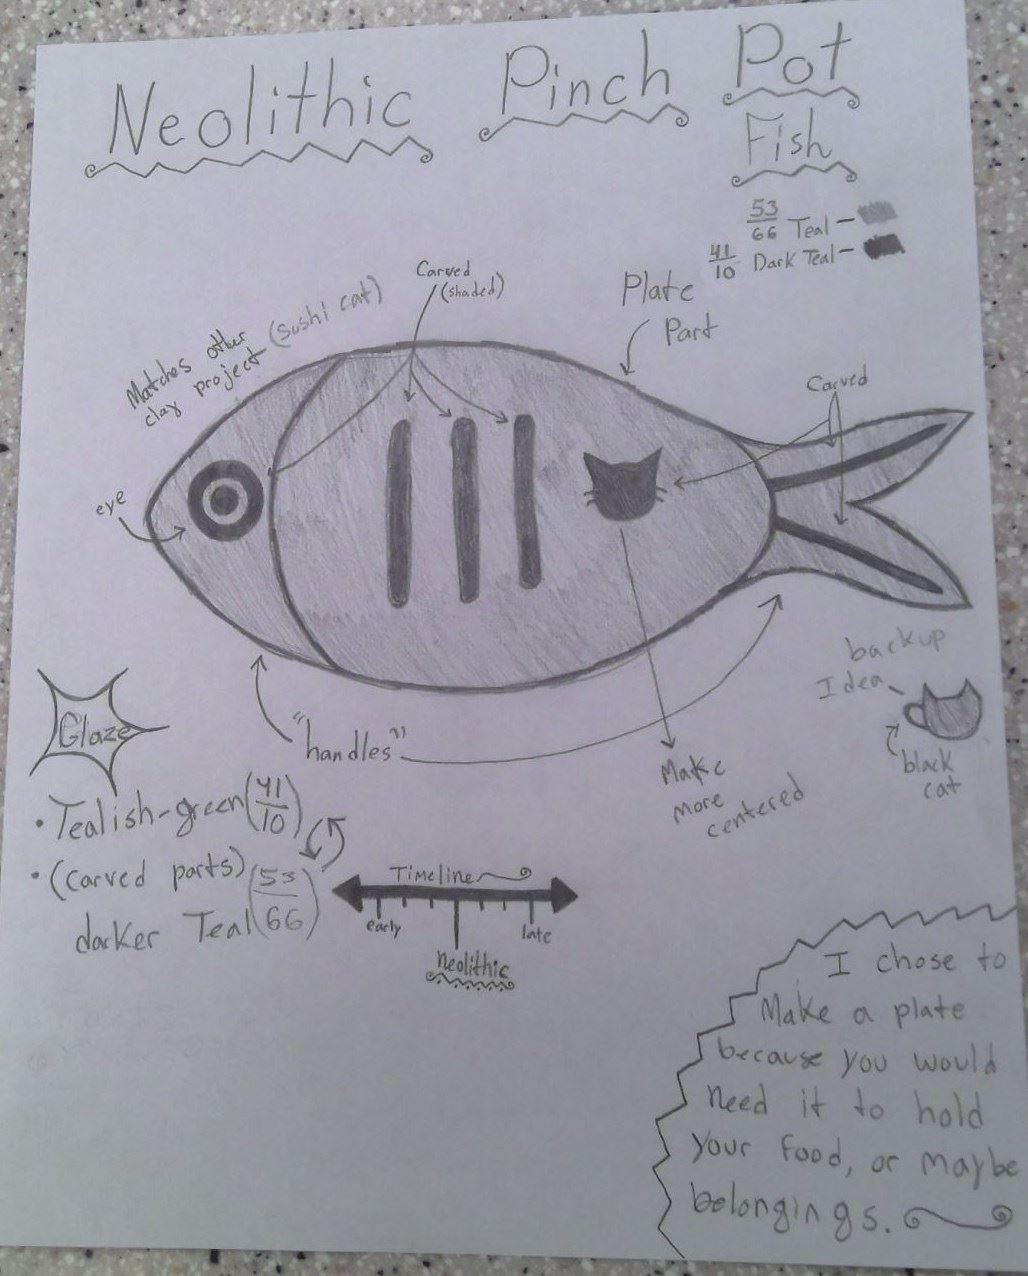 Neolithic Pinch Pot
Fish
53
66 Teal
41
10 Dark Teal
Carved
(shaded)
Plate
Part
Matches other
clay project (sushi cat)
Carved
eye
backup
Idea
black
cat
"handles"
Make
more
centered
Glaze
• Tealish-green (41
10)
• (Carved parts) (53
66)
darker Teal
Timeline
early
late
Neolithic
I chose to
Make a plate
because you would
need it to hold
your food, or maybe
belongings.